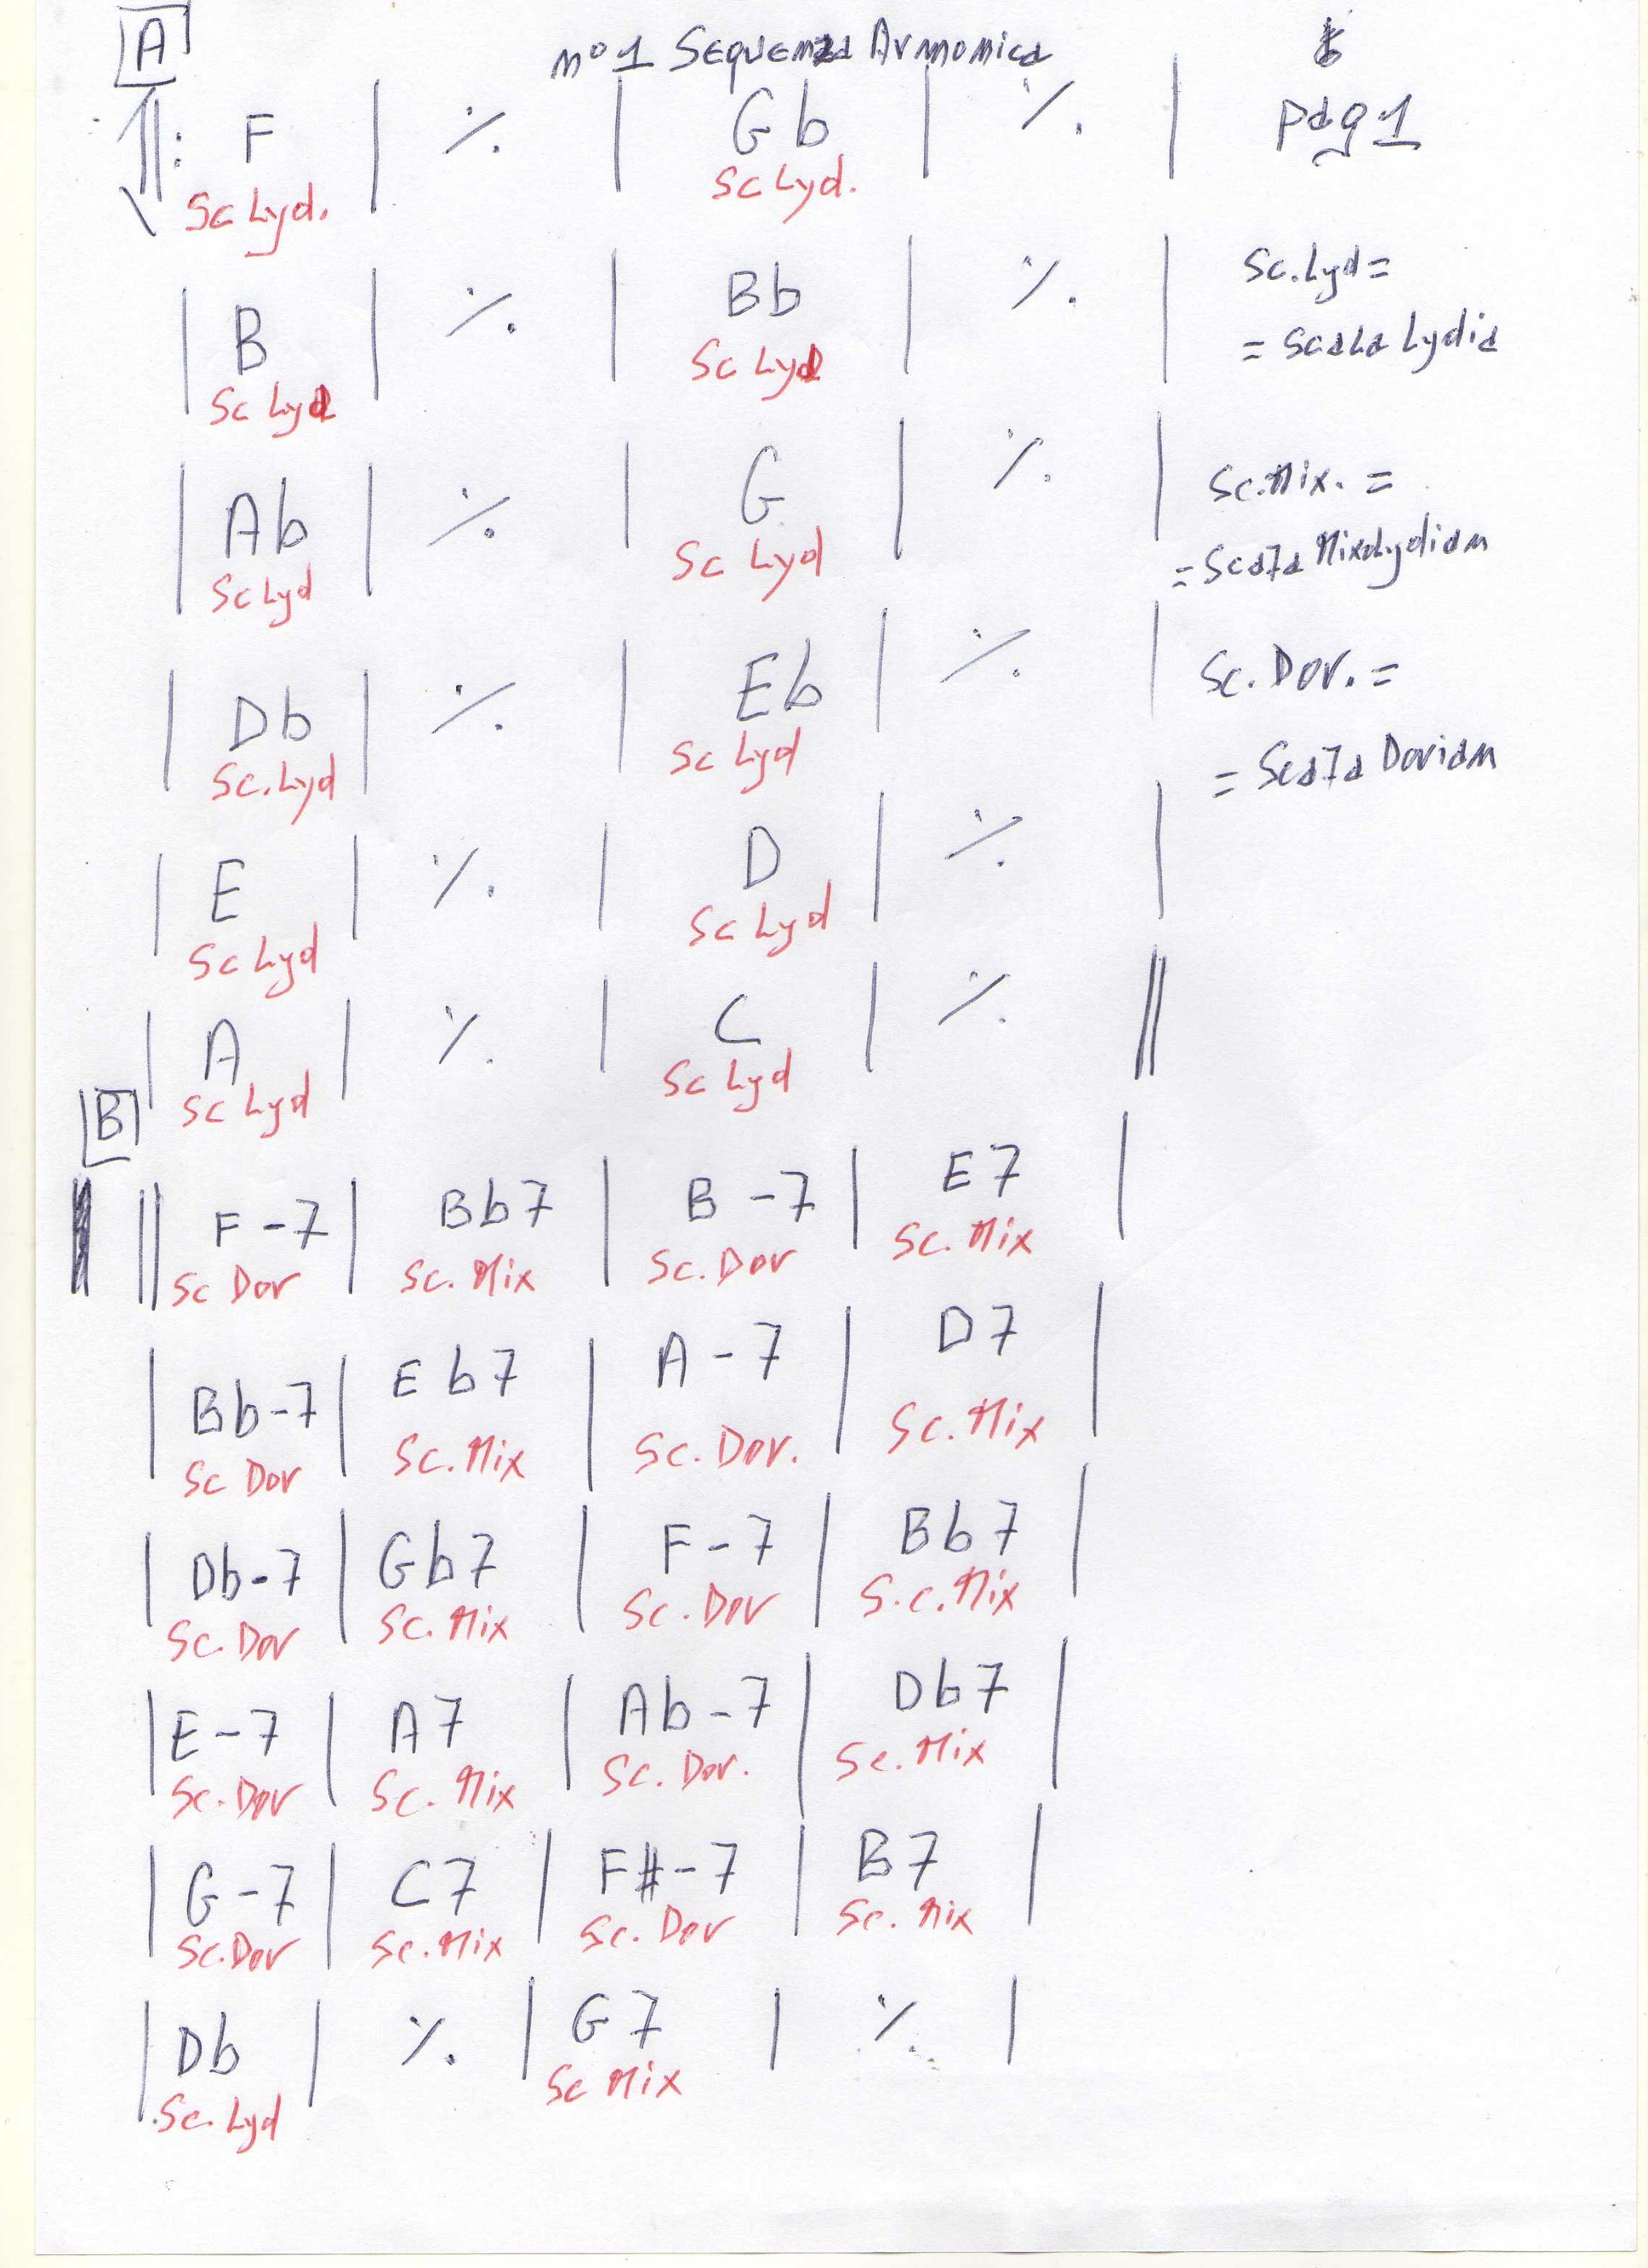 A
n° 1 Sequenza Armonica
pag 1
F | % | Gb | % |
Sc Lyd. Sc Lyd.
Sc. Lyd =
= Scala Lydia
| B | % | Bb | % |
Sc Lyd Sc Lyd
Sc. Mix. =
= Scala Mixolydian
| Ab | % | G | % |
Sc Lyd Sc Lyd
Sc. Dor. =
= Scala Dorian
| Db | % | Eb | % |
Sc. Lyd Sc Lyd
| E | % | D | % |
Sc Lyd Sc Lyd
| A | % | C | % ||
Sc Lyd Sc Lyd
B
|| F-7 | Bb7 | B-7 | E7 |
Sc Dor Sc. Mix Sc. Dor Sc. Mix
| Bb-7 | Eb7 | A-7 | D7 |
Sc Dor Sc. Mix Sc. Dor. Sc. Mix
| Db-7 | Gb7 | F-7 | Bb7 |
Sc. Dor Sc. Mix Sc. Dor S.c. Mix
| E-7 | A7 | Ab-7 | Db7 |
Sc. Dor Sc. Mix Sc. Dor. Sc. Mix
| G-7 | C7 | F#-7 | B7 |
Sc. Dor Sc. Mix Sc. Dor Sc. Mix
| Db | % | G7 | % |
Sc. Lyd Sc Mix